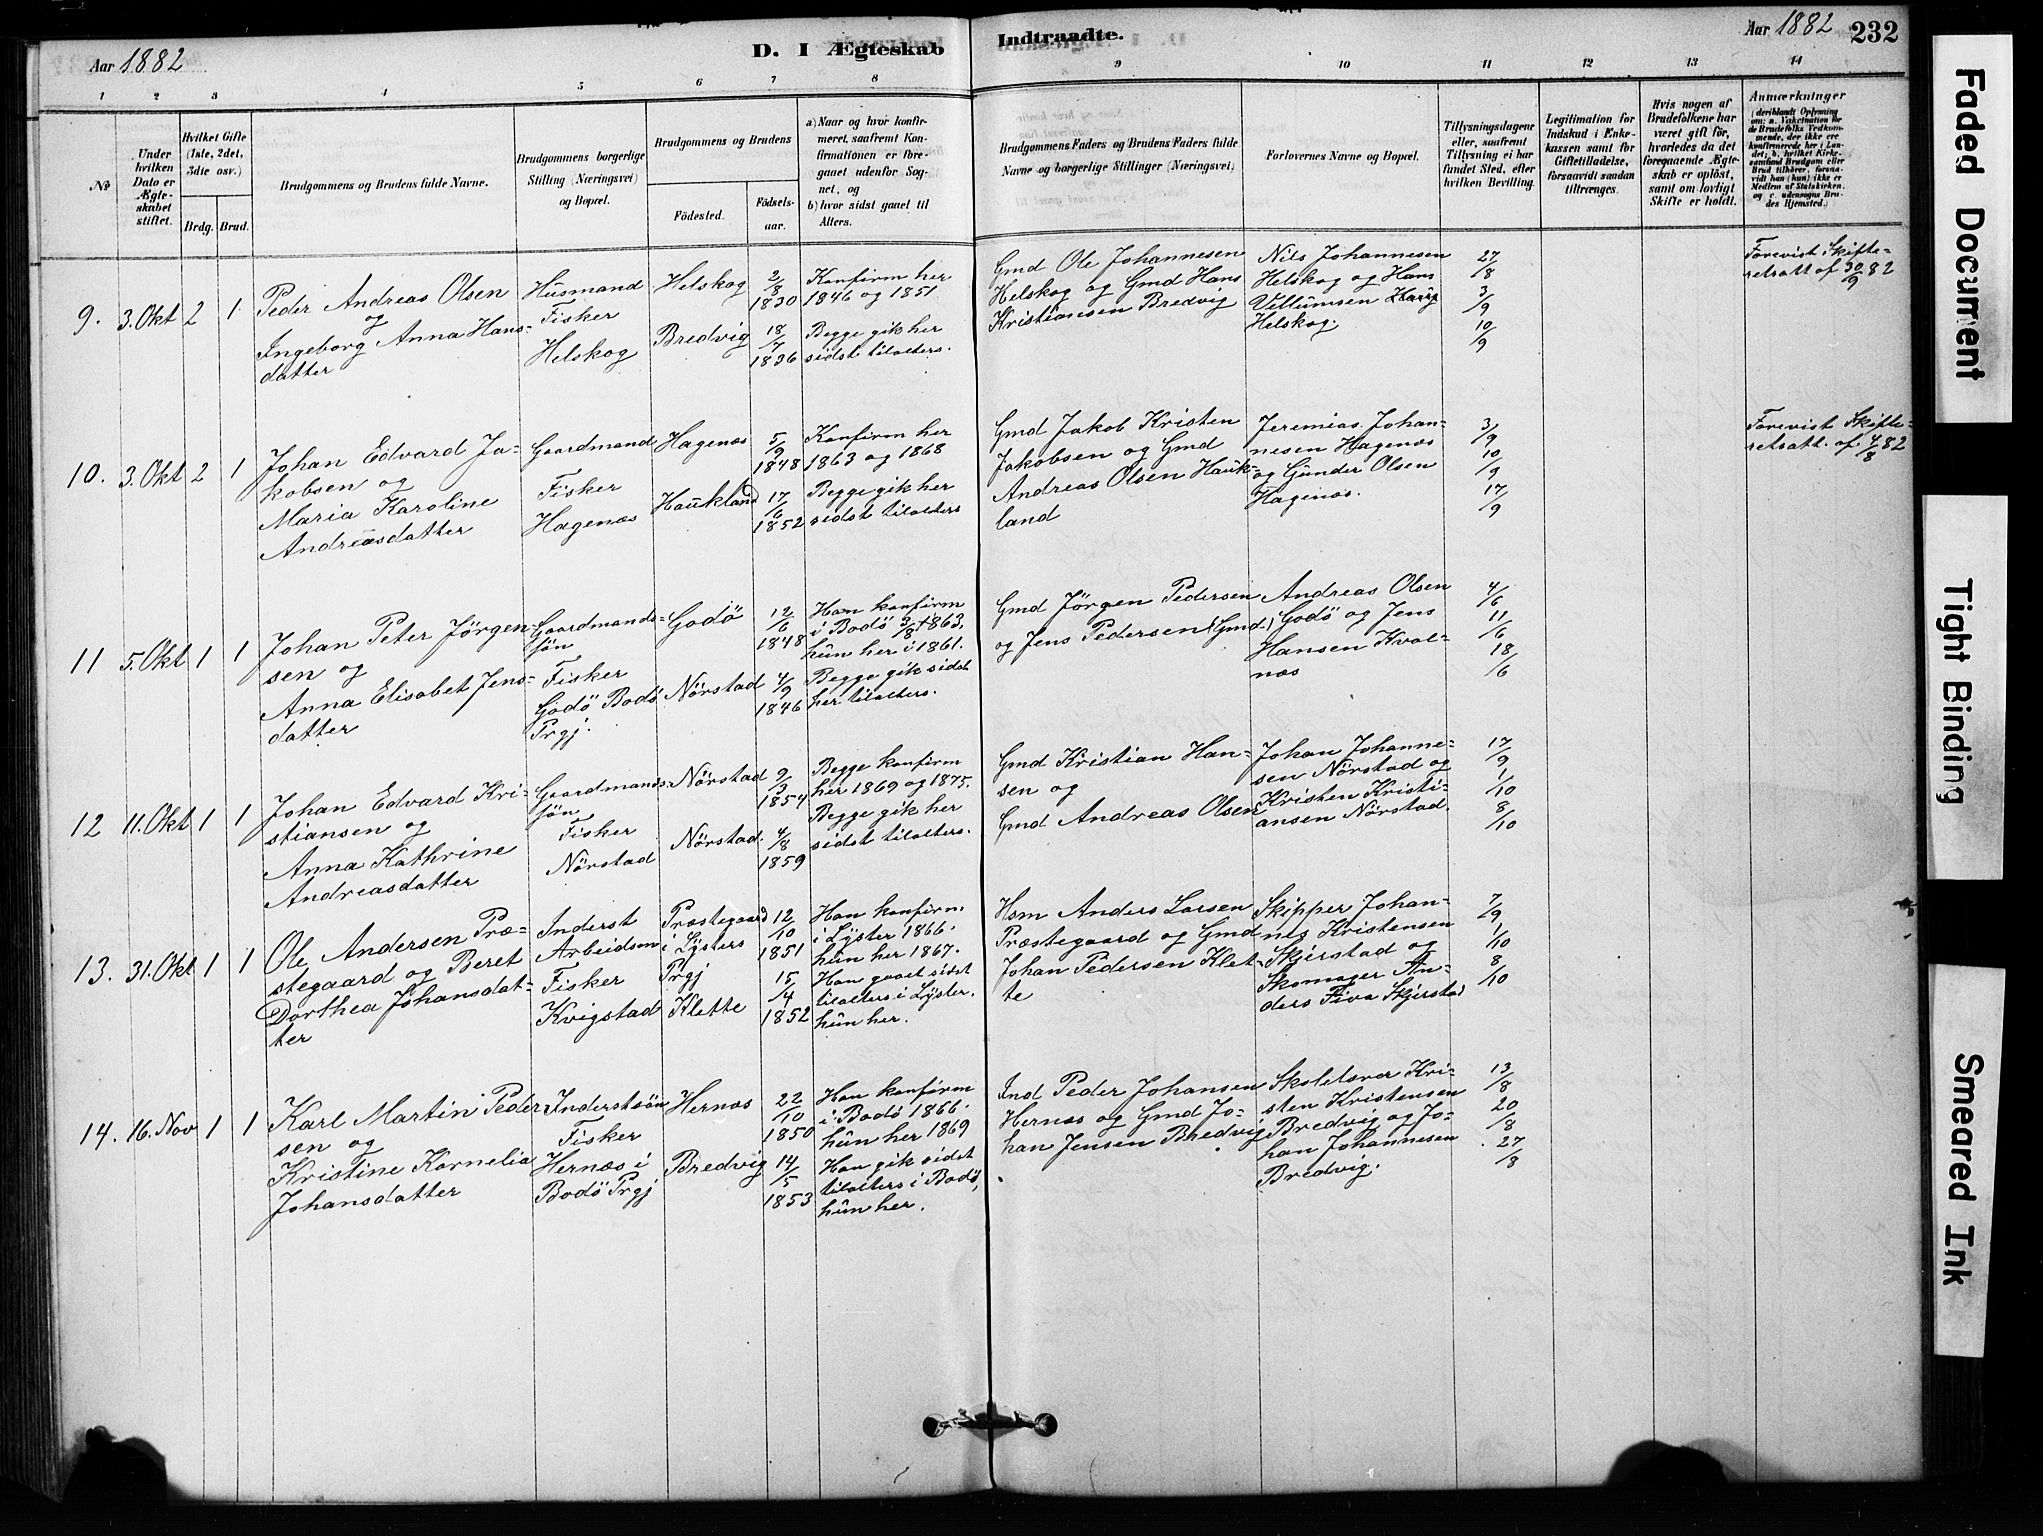 Aar 1882
D. I Ægteskab
Indtraadte.
Aar 1882
232
1 2 3 4 5 6 7 8 9 10 11 12 13 14
No
Under hvilken Dato er Ægteskabet stiftet.
Hvilket Gifte (1ste, 2det, 3die osv.)
Brdg. Brud.
Brudgommens og Brudens fulde Navne.
Brudgommens borgerlige Stilling (Næringsvei) og Bopæl.
Brudgommens og Brudens
Födested.
Födselsaar.
a) Naar og hvor konfirmeret, saafremt Konfirmationen er foregaaet udenfor Sognet, og
b) hvor sidst gaaet til Alters.
Brudgommens Faders og Brudens Faders fulde Navne og borgerlige Stillinger (Næringsvei)
Forlovernes Navne og Bopæl.
Tillysningsdagene eller, saafremt Tillysning ei har fundet Sted, efter hvilken Bevilling.
Legitimation for Indskud i Enkekassen samt for Giftetilladelse, forsaavidt saadan tiltrænges.
Hvis nogen af Brudefolkene har været gift för, hvorledes da det foregaaende Ægteskab er oplöst, samt om lovligt Skifte er holdt.
Anmærkninger
9. 3. Okt 2 1
Peder Andreas Olsen
og
Ingeborg Anna Hans-
datter
Husmand
Fisker
Helskog
Helskog
Bredvig
2/8 1830
18/7 1836
Konfirm her
1846 og 1851
Begge gik her
sidst tilalters.
Gmd Ole Johannesen
Helskog og Gmd Hans
Kristiansen Bredvig
Nils Johannesen
Helskog og Hans
Villumsen
Helskog.
27/8
3/9
10/9
Forevist Skifte-
retsatt af 30/9 82
10. 3. Okt 2 1
Johan Edvard Ja-
kobsen og
Maria Karoline
Andreasdatter
Gaardmand
Fisker
Hagenæs
Hagenæs
Haukland
5/9 1848
17/6 1852
Konfirm her
1863 og 1868
Begge gik her
sidst tilalters
Gmd Jakob Kristen
Jakobsen og Gmd
Andreas Olsen Hauk-
land
Jeremias Johan-
nesen Hagenæs
og Gunder Olsen
Hagenæs.
3/9
10/9
17/9
Forevist Skifte-
retsatt. af 4/8 82
11 5. Okt 1 1
Johan Peter Jörgen-
sen og
Anna Elisabet Jens-
datter
Gaardmands-
sön
Fisker
Godö Bodö
Prgj.
Godö
Nörstad
12/6 1848
4/9 1846
Han konfirm
i Bodö 3/8 1863.
hun her i 1861.
Begge gik sidst
her tilalters.
Gmd Jörgen Pedersen
og Jens Pedersen (Gmd)
Andreas Olsen
Godö og Jens
Hansen Kval-
næs
4/6
11/6
18/6
12 11. Okt 1 1
Johan Edvard Kri-
stiansen og
Anna Kathrine
Andreasdatter
Gaardmands-
sön
Fisker
Nörstad
Nörstad
Nörstad.
9/3 1854
4/8 1859
Begge konfirm
her 1869 og 1875.
Begge gik her
sidst tilalters.
Gmd Kristian Han-
sen og
Gmd Andreas Olsen
Johan Johanne-
sen Nörstad og
Kristen Kristi-
ansen Nörstad.
17/9
1/10
8/10
13. 31. Okt 1 1
Ole Andersen Præ-
stegaard og Beret
Dorthea Johansdat-
ter
Inderst
Arbeidsm
Fisker
Kvigstad
Præstegaard
i Lysters
Prgj
Klette
12/10 1851
15/4 1852
Han konfirm.
i Lyster 1866.
hun her 1867.
Han gaaet sidst
tilalters i Lyster.
hun her.
Hsm Anders Larsen
Præstegaard og Gmd
Johan Pedersen Klet-
te
Skipper Johan-
nes Kristensen
Skjerstad og
Skomager An-
ders Fiva Skjerstad
7/9
1/10
8/10
14. 16. Nov 1 1
Karl Martin Peder
sen og
Kristine Kornelia
Johansdatter
Inderstsön
Fisker
Hernæs i
Bodö Prgj
Hernæs
Bredvig
22/10 1850
14/5 1853
Han konfirm
i Bodö 1866.
hun her 1869
Han gik sidst
tilalters i Bodö,
hun her.
Ind Peder Johansen
Hernæs og Gmd Jo-
han Jensen Bredvig
Skolelærer Kri-
sten Kristensen
Bredvig og Jo-
han Johannesen
Bredvig.
13/8
20/8
27/8
Faded Document
Tight Binding
Smeared Ink